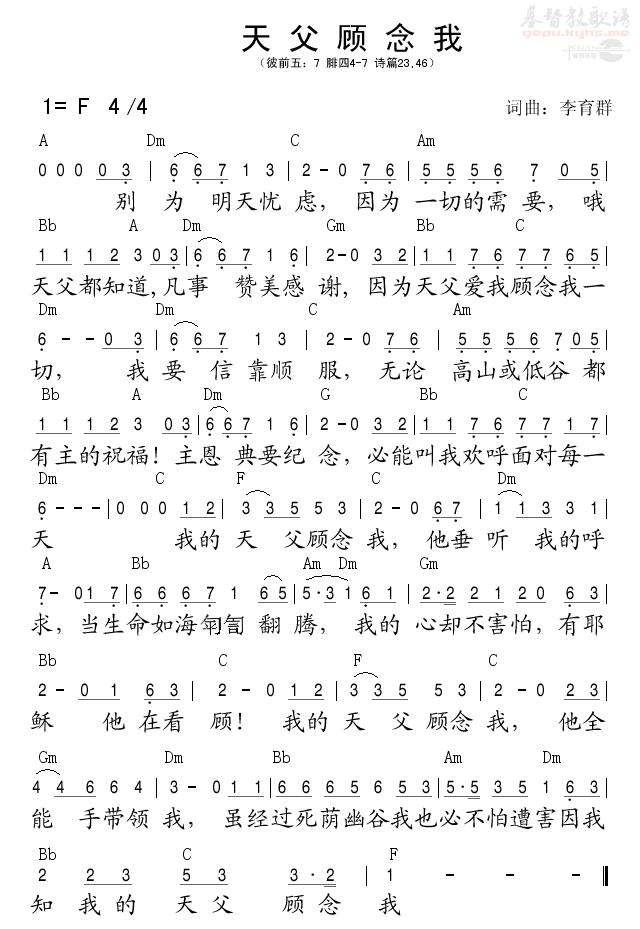 基督教歌谱
gepu.kyhs.me
天父顾念我
(彼前五：7 腓四4-7 诗篇23,46)
1= F 4/4
词曲：李育群
A Dm C Am
0 0 0 0 3 | 6 6 7 1 3 | 2 - 0 7 6 | 5 5 5 6 7 0 5 |
别 为 明天忧 虑，因为 一切的需 要，哦
Bb A Dm Gm Bb C
1 1 1 2 3 0 3 | 6 6 7 1 6 | 2 - 0 3 2 | 1 1 7 6 7 7 6 5 |
天父都知道,凡事 赞美感 谢，因为天父爱我顾念我一
Dm Dm C Am
6 - - 0 3 | 6 6 7 1 3 | 2 - 0 7 6 | 5 5 5 6 7 0 5 |
切， 我 要 信 靠顺 服，无论 高山或低谷 都
Bb A Dm G Bb C
1 1 1 2 3 0 3 | 6 6 7 1 6 | 2 - 0 3 2 | 1 1 7 6 7 7 1 7 |
有主的祝福！主恩 典要纪 念，必能叫我欢呼面对每一
Dm C F C Dm
6 - - - | 0 0 0 1 2 | 3 3 5 5 3 | 2 - 0 6 7 | 1 1 3 3 1 |
天 我的 天 父顾念 我，他垂 听 我的呼
A Bb Am Dm Gm
7 - 0 1 7 | 6 6 6 7 1 6 5 | 5 · 3 1 6 1 | 2 · 2 2 1 2 0 6 3 |
求，当生命如海匐訇 翻 腾， 我的 心却不害怕，有耶
Bb C F C
2 - 0 1 6 3 | 2 - 0 1 2 | 3 3 5 5 3 | 2 - 0 2 3 |
稣 他 在看 顾！ 我的 天 父 顾念 我， 他全
Gm Dm Bb Am Dm
4 4 6 6 4 | 3 - 0 1 1 | 6 6 6 5 6 6 5 3 | 5 · 5 3 5 1 6 3 |
能 手带领 我， 虽经过死荫幽谷我也必不怕遭害因我
Bb C F
2 2 3 5 3 3 · 2 | 1 - - - ‖
知 我的 天父 顾念 我